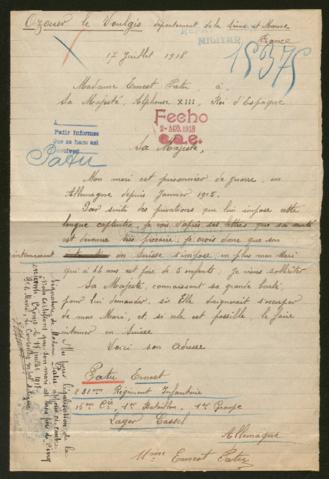 Ozouer le Voulgis département de la Seine et Marne
France
MILITAR
15375
17 Juillet 1918
Madame Ernest Patu à
Sa Majesté, Alphonse XIII, Roi d'Espagne
Fecho
2-AGO.1918
Pedir informes
Patu
Sa Majesté,
Mon mari est prisonnier de guerre, en
Allemagne depuis Janvier 1915.
Par suite des privations que lui impose cette
longue captivité, je vois d'après ses lettres que sa santé
est devenue très précaire, je crois donc que son
internement en Suisse s'impose, en plus mon Mari
qui a 44 ans est père de 5 enfants. Je viens solliciter
Sa Majesté, connaissant sa grande bonté,
pour lui demander, si Elle daignerait s'occuper
de mon Mari, et si cela est possible le faire
interner en Suisse
Voici son adresse
Patu Ernest
231me Régiment Infanterie
15me Cie, 1er Bataillon, 1er Groupe
Lager Cassel
Allemagne
Mme Ernest Patu
Vu pour légalisation de la
signature de Madame Patu